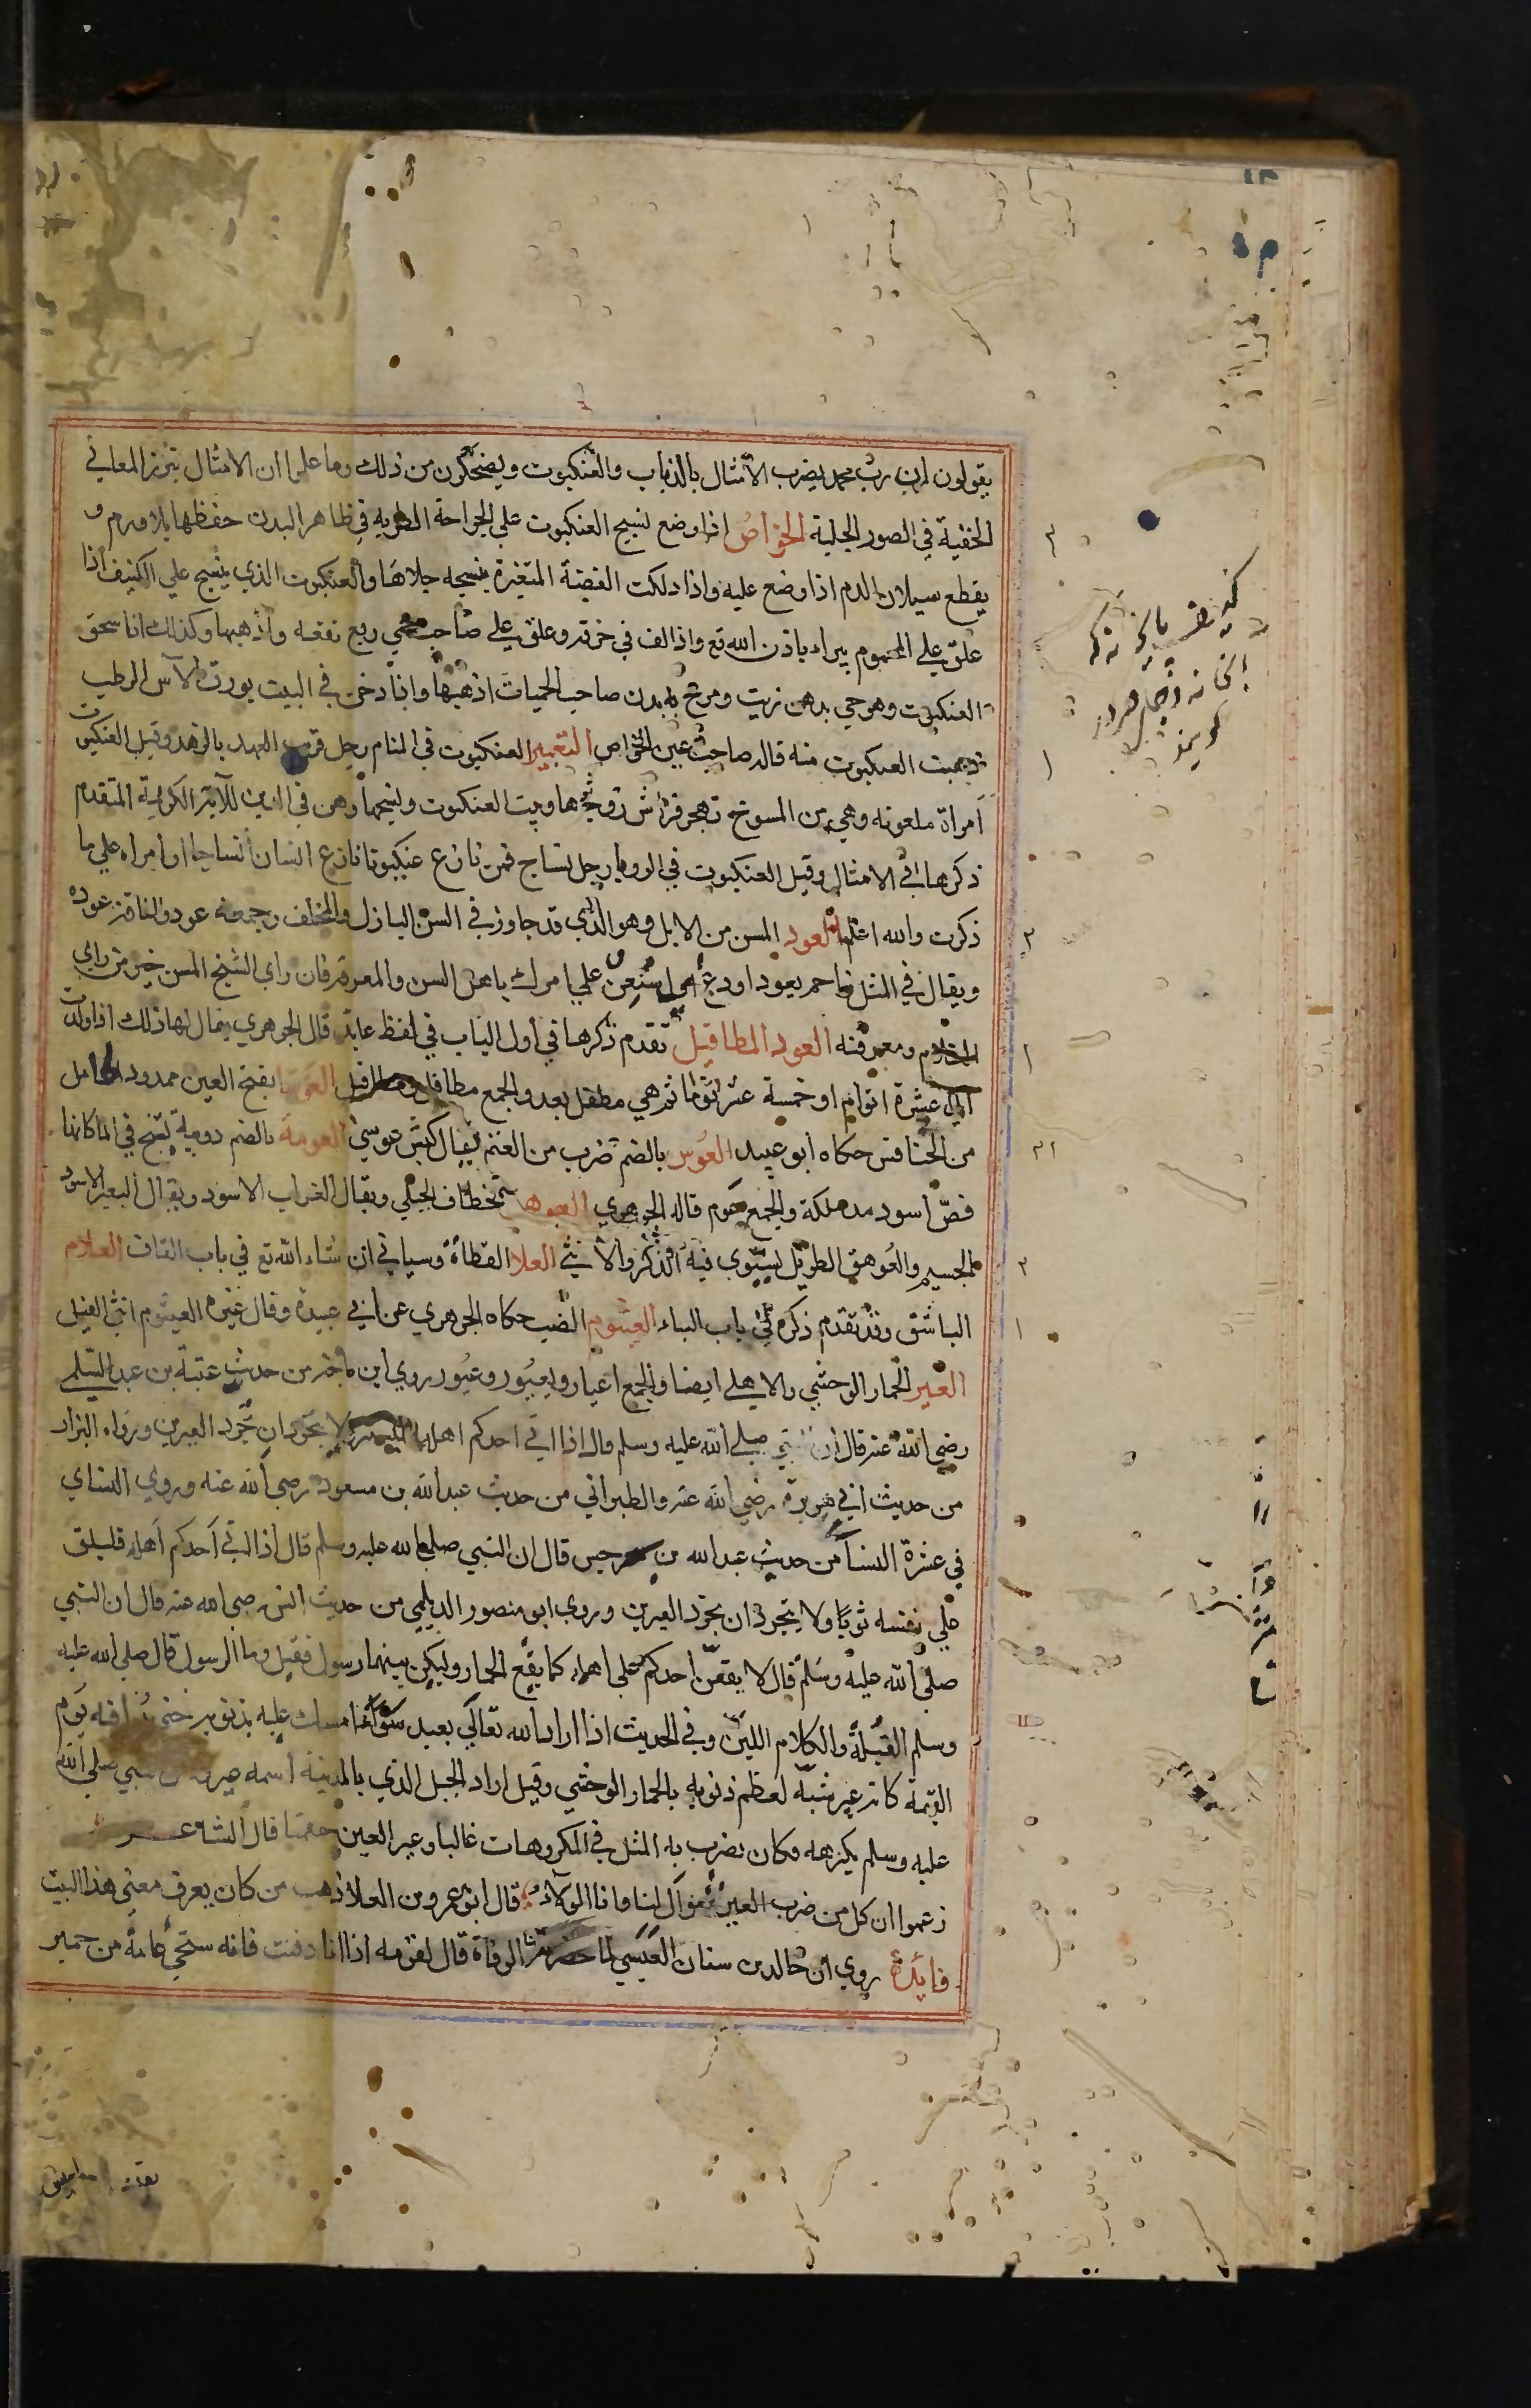 يقولون ان رب محمد يضرب الامثال بالذباب والعنكبوت ويضحكون من ذلك وما علموا ان الامثال تبرز المعاني
الخفية في الصور الجلية الخواص اذا وضع نسيج العنكبوت على الجراحة الطرية في ظاهر البدن حفظها بلا ورم و
يقطع سيلان الدم اذا وضع عليه واذا دلكت الفضة المتغيرة بنسجه جلاها والعنكبوت الذي ينسج على الكنيف اذا
علق على المحموم يبراء باذن الله تع واذا لف في خرقه وعلق على صاحب حمي ربع نفعه واذهبها وكذلك اذا سحق
العنكبوت وهو حي بدهن زيت ومرخ به بدن صاحب الحميات اذهبها واذا دخن في البيت بورق الآس الرطب
ذهبت العنكبوت منه قاله صاحب عين الخواص التعبير العنكبوت في المنام رجل قريب العهد بالزهد وقيل العنكبوت
امراة ملعونه وهي من المسوخ تهجر فراش زوجها وبيت العنكبوت ونسجها وهن في الدين للآية الكريمة المتقدم
ذكرها في الامثال وقيل العنكبوت في الرويا رجل نساج فمن نازع عنكبوتا نازع انسانا نساجا او امراه على ما
ذكرت والله اعلم العود المسن من الابل وهو الذي قد جاوز في السن البازل والمخلف وجمعه عوده والناقة عوده
ويقال في المثل زاحم بعود او دع اي استعن على امرك باهل السن والمعرفة فان راي الشيخ المسن خير من راي
الغلام ومعرفته العود المطافيل تقدم ذكرها في اول الباب في لفظ عايذ قال الجوهري يقال لها ذلك اذا ولدت
الي عشرة ايام او خمسة عشر يوما ثم هي مطفل بعد والجمع مطافل ومطافيل العوسا بفتح العين ممدود الحامل
من الخنافس حكاه ابو عبيد العوس بالضم ضرب من الغنم يقال كبش عوسي العومة بالضم دويبة تسبح في الماء كانها
فص اسود مدملكة والجمع عوم قاله الجوهري العوهق الخطاف الجبلي ويقال الغراب الاسود ويقال البعير الاسود
الجسيم والعوهق الطويل يستوي فيه الذكر والانثي العلا القطاة وسياتي ان شاء الله تع في باب القاف العلام
الباشق وقد تقدم ذكره في باب الباء العيثوم الضبع حكاه الجوهري عن ابي عبيدة وقال غيره العيثوم انثى الفيل
العير الحمار الوحشي والاهلي ايضا والجمع اعيار ومعيورا وعيورة روي ابن ماجه من حديث عتبة بن عبد السلمي
رضي الله عنه قال ان النبي صلى الله عليه وسلم قال اذا اتي احدكم اهله فليستتر ولا يتجردان تجرد العيرين ورواه البزار
من حديث ابي هريرة رضي الله عنه والطبراني من حديث عبد الله بن مسعود رضي الله عنه وروي النساي
في عشرة النسا من حديث عبد الله بن سرجس قال ان النبي صلى الله عليه وسلم قال اذا اتي احدكم اهله فليلق
على نفسه ثوبا ولا يتجردان تجرد العيرين وروي ابو منصور الديلمي من حديث انس رضي الله عنه قال ان النبي
صلى الله عليه وسلم قال لا يقعن احدكم على اهله كما يقع الحمار وليكن بينهما رسول فقيل وما الرسول قال صلى الله عليه
وسلم القبلة والكلام اللين وفي الحديث اذا اراد الله تعالى بعبد سوءا امسك عليه بذنوبه حتى يوافيه يوم
القيمة كانه عير شبه لعظم ذنوبه بالحمار الوحشي وقيل اراد الجبل الذي بالمدينة اسمه عير النبي صلى الله
عليه وسلم يكرهه فكان يضرب به المثل في المكروهات غالبا وعير العين جفنها قال الشاعر
زعموا ان كل من ضرب العير موال لنا وانا الولاء قال ابو عمرو بن العلا ذهب من كان يعرف معنى هذا البيت
فايدة روي ان خالد بن سنان العبسي لما حضرته الوفاة قال لقومه اذا انا دفنت فانه ستجئ عانة من حمير